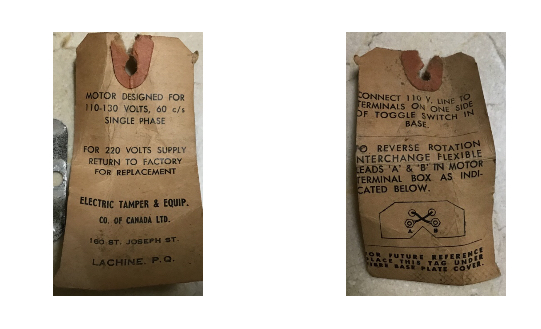 MOTOR DESIGNED FOR
110-130 VOLTS, 60 c/s
SINGLE PHASE
FOR 220 VOLTS SUPPLY
RETURN TO FACTORY
FOR REPLACEMENT
ELECTRIC TAMPER & EQUIP.
CO. OF CANADA LTD.
160 ST. JOSEPH ST.
LACHINE, P.Q.
CONNECT 110 V. LINE TO
TERMINALS ON ONE SIDE
OF TOGGLE SWITCH IN
BASE.
TO REVERSE ROTATION
INTERCHANGE FLEXIBLE
LEADS 'A' & 'B' IN MOTOR
TERMINAL BOX AS INDI-
CATED BELOW.
A B
FOR FUTURE REFERENCE
PLACE THIS TAG UNDER
BASE PLATE COVER.